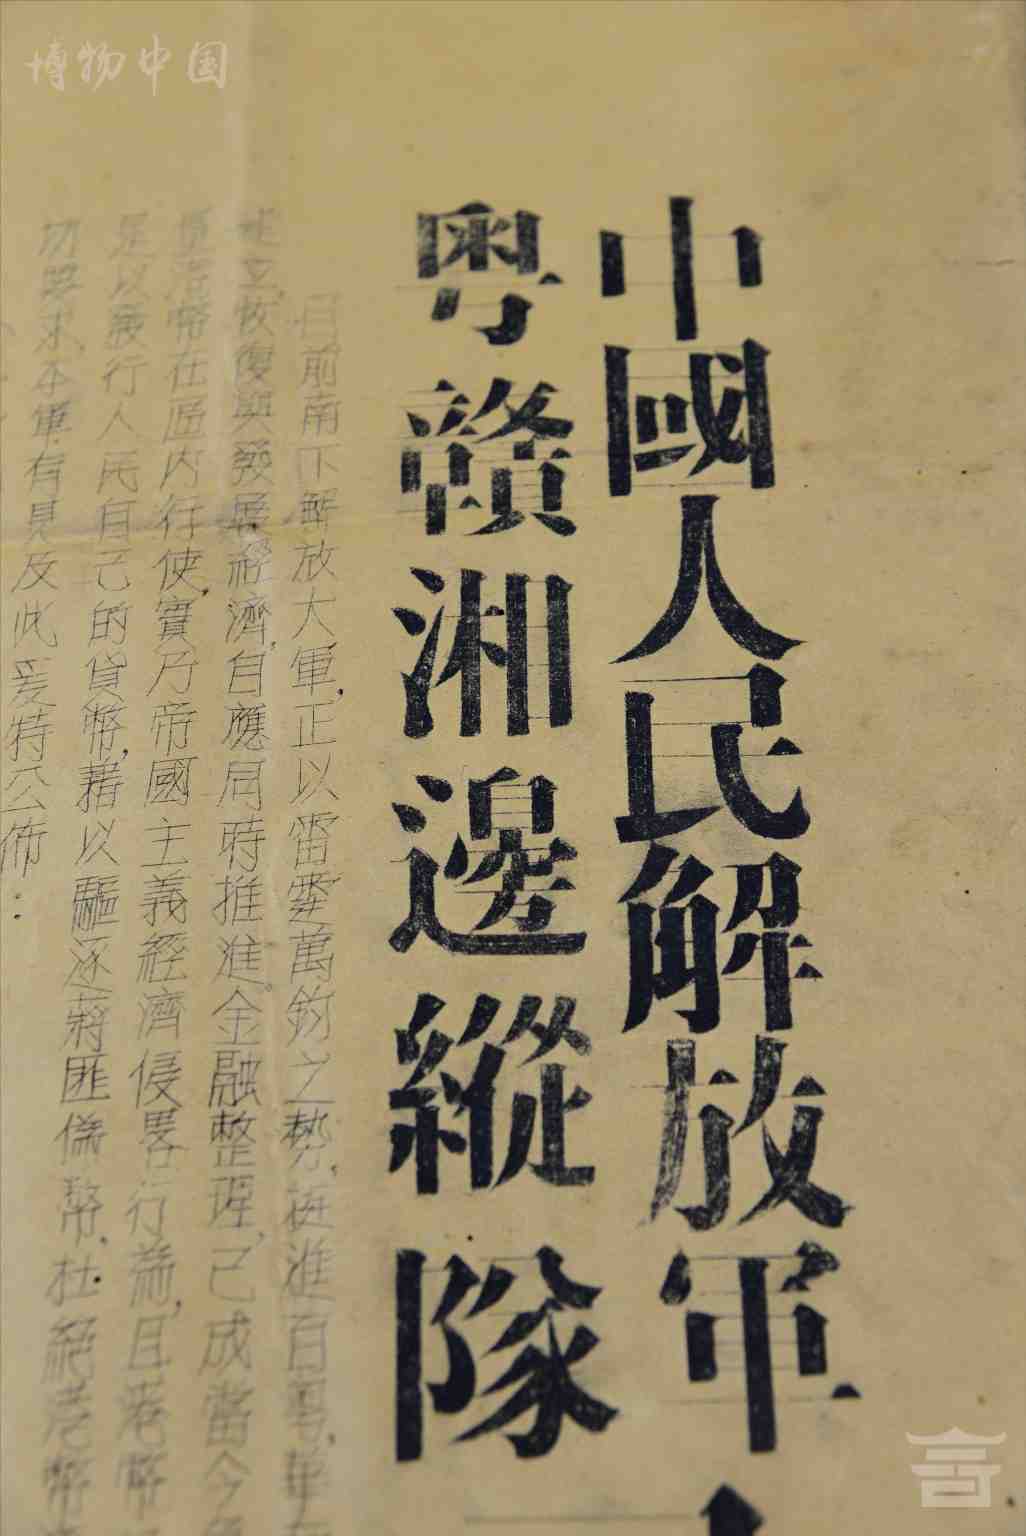 博物中国
中國人民解放軍
粤贛湘邊縱隊
目前南下解放大軍,正以雷霆萬鈞之勢,挺進百粵,華
建立恢復與發展經濟,自應同時推進金融整理,已成當今
港幣在區内行使,實乃帝國主義經濟侵畧行為,且港幣
足以發行人民自己的貨幣,藉以驅逐蔣匪偽幣,杜絕港幣
切要求,本軍有見及此爰特公佈: